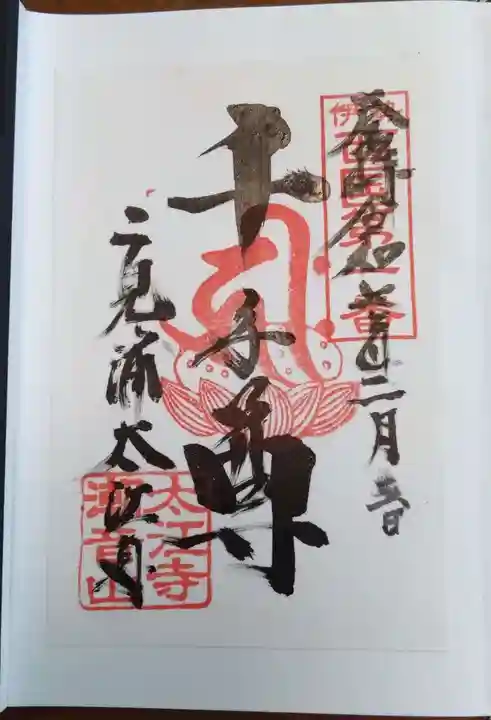 伊勢
西国第一番
奉拝
令和
二月
千手尊
二見浦太江寺
太江寺
潮音山